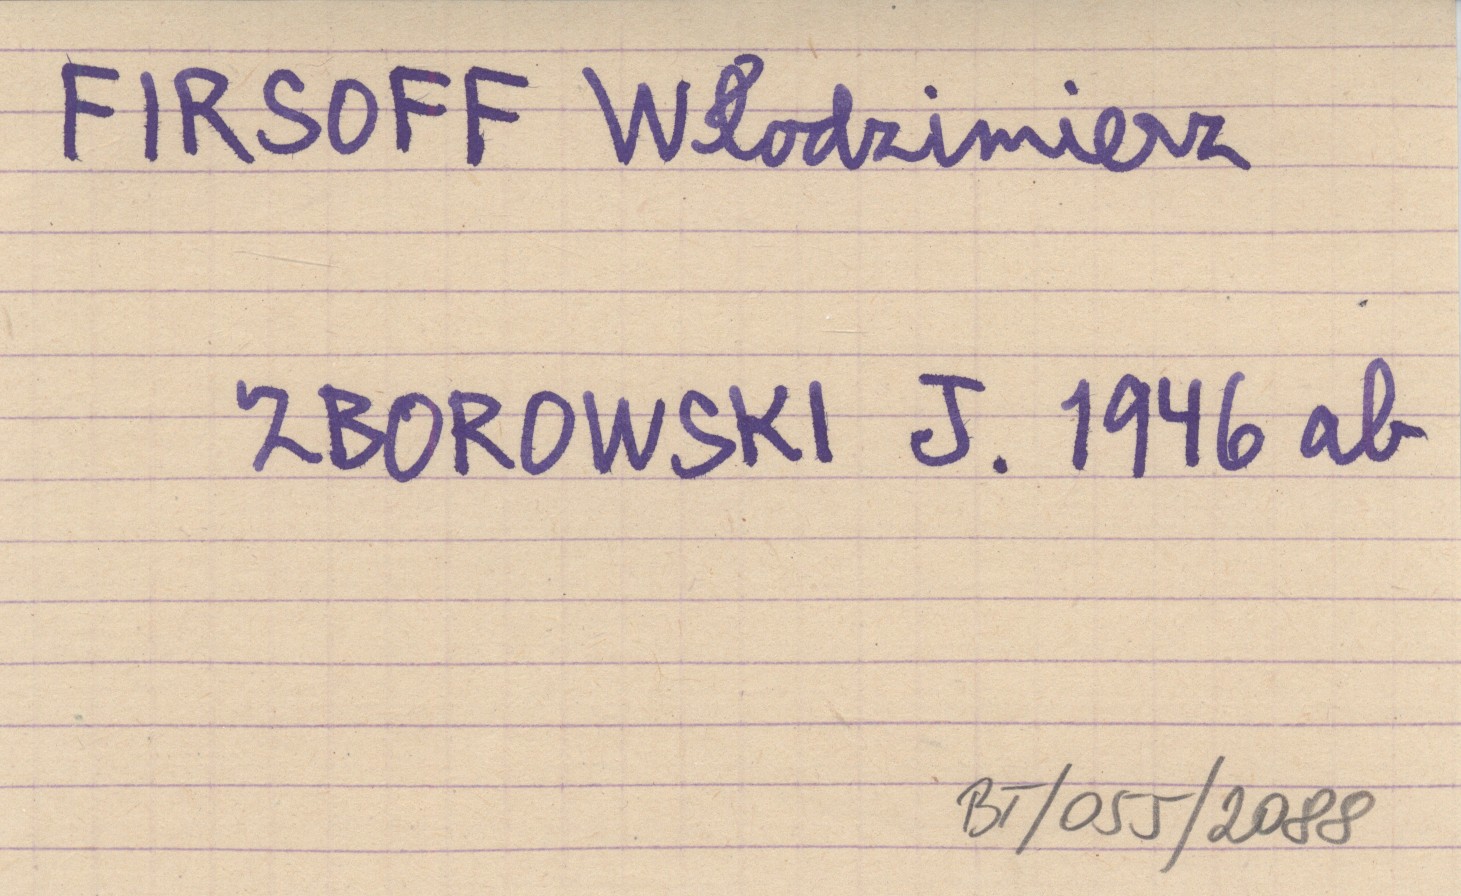 FIRSOFF Włodzimierz
ZBOROWSKI J. 1946 ab
BT/OSJ/2088